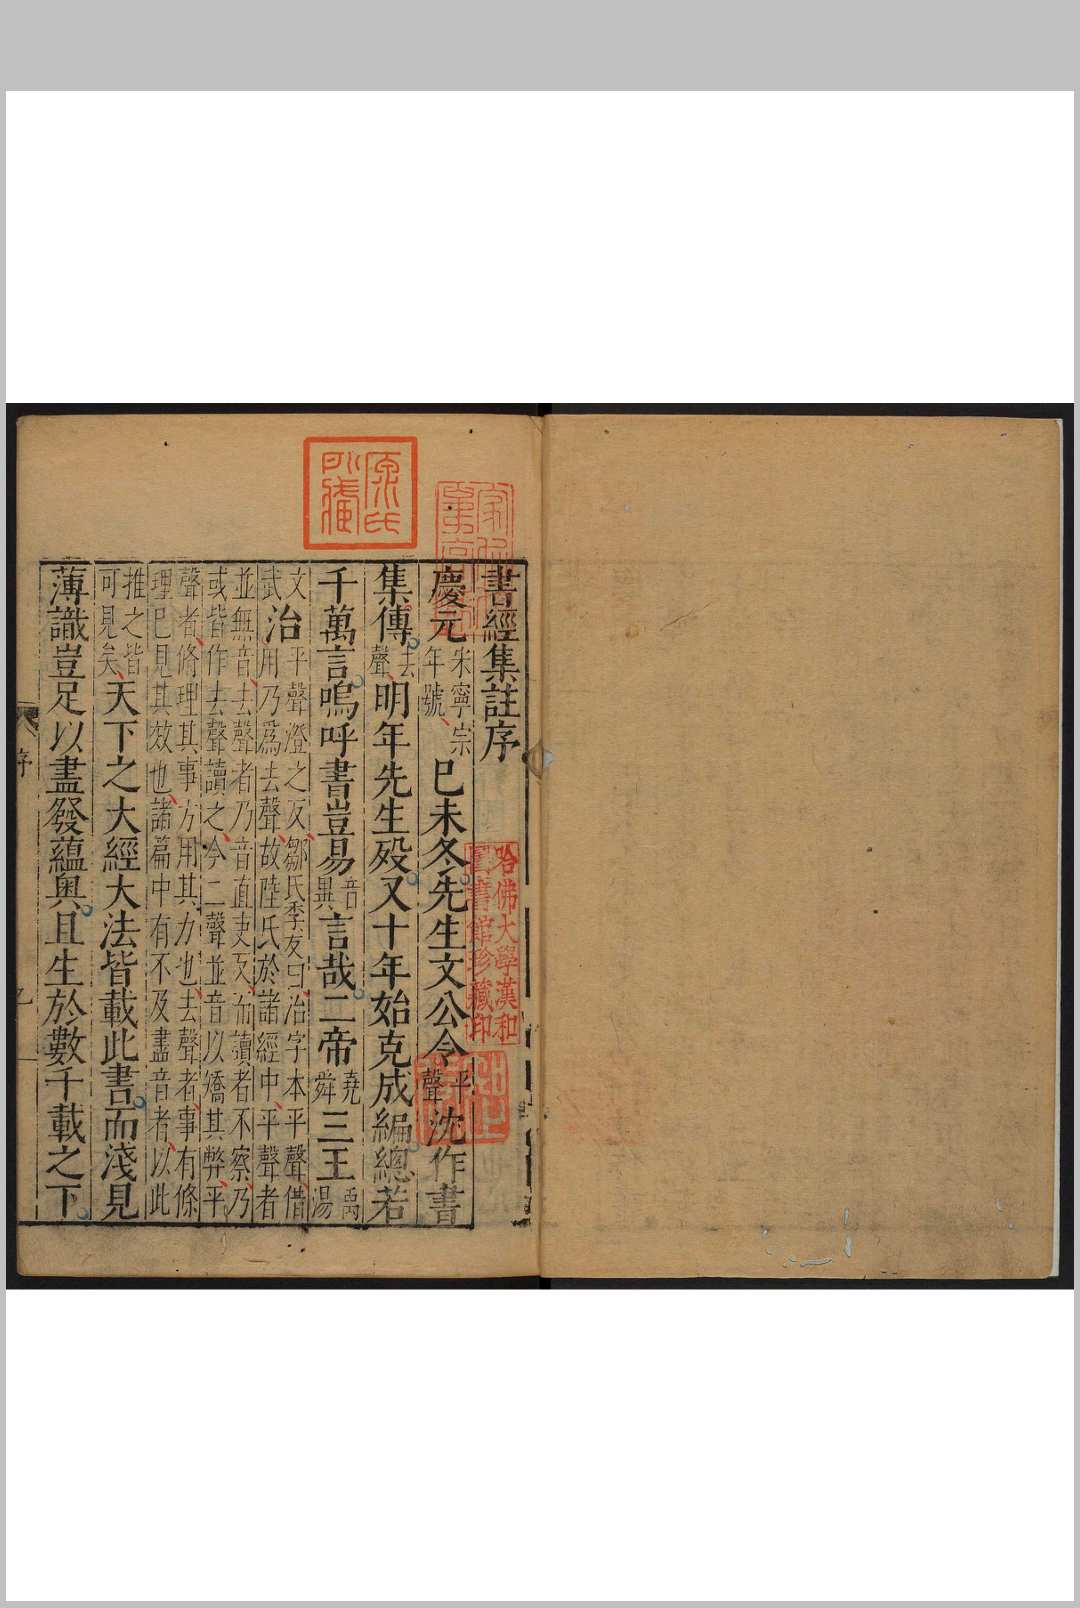 書經集註序
慶元宋寧宗年號己未冬先生文公令平聲沈作書
集傳去聲明年先生殁又十年始克成編總若
千萬言嗚呼書豈易音異言哉二帝堯舜三王禹湯
文武治平聲澄之反鄒氏季友曰治字本平聲借
用乃爲去聲故陸氏於諸經中平聲者
並無音去聲者乃音直吏反而讀者不察乃
或皆作去聲讀之今二聲並音以矯其弊平
聲者脩理其事方用其力也去聲者事有條
理已見其效也諸篇中有不及盡音者以此
推之皆可見矣天下之大經大法皆載此書而淺見
薄識豈足以盡發蘊奧且生於數千載之下
序
哈佛大學漢和
圖書館珍藏印